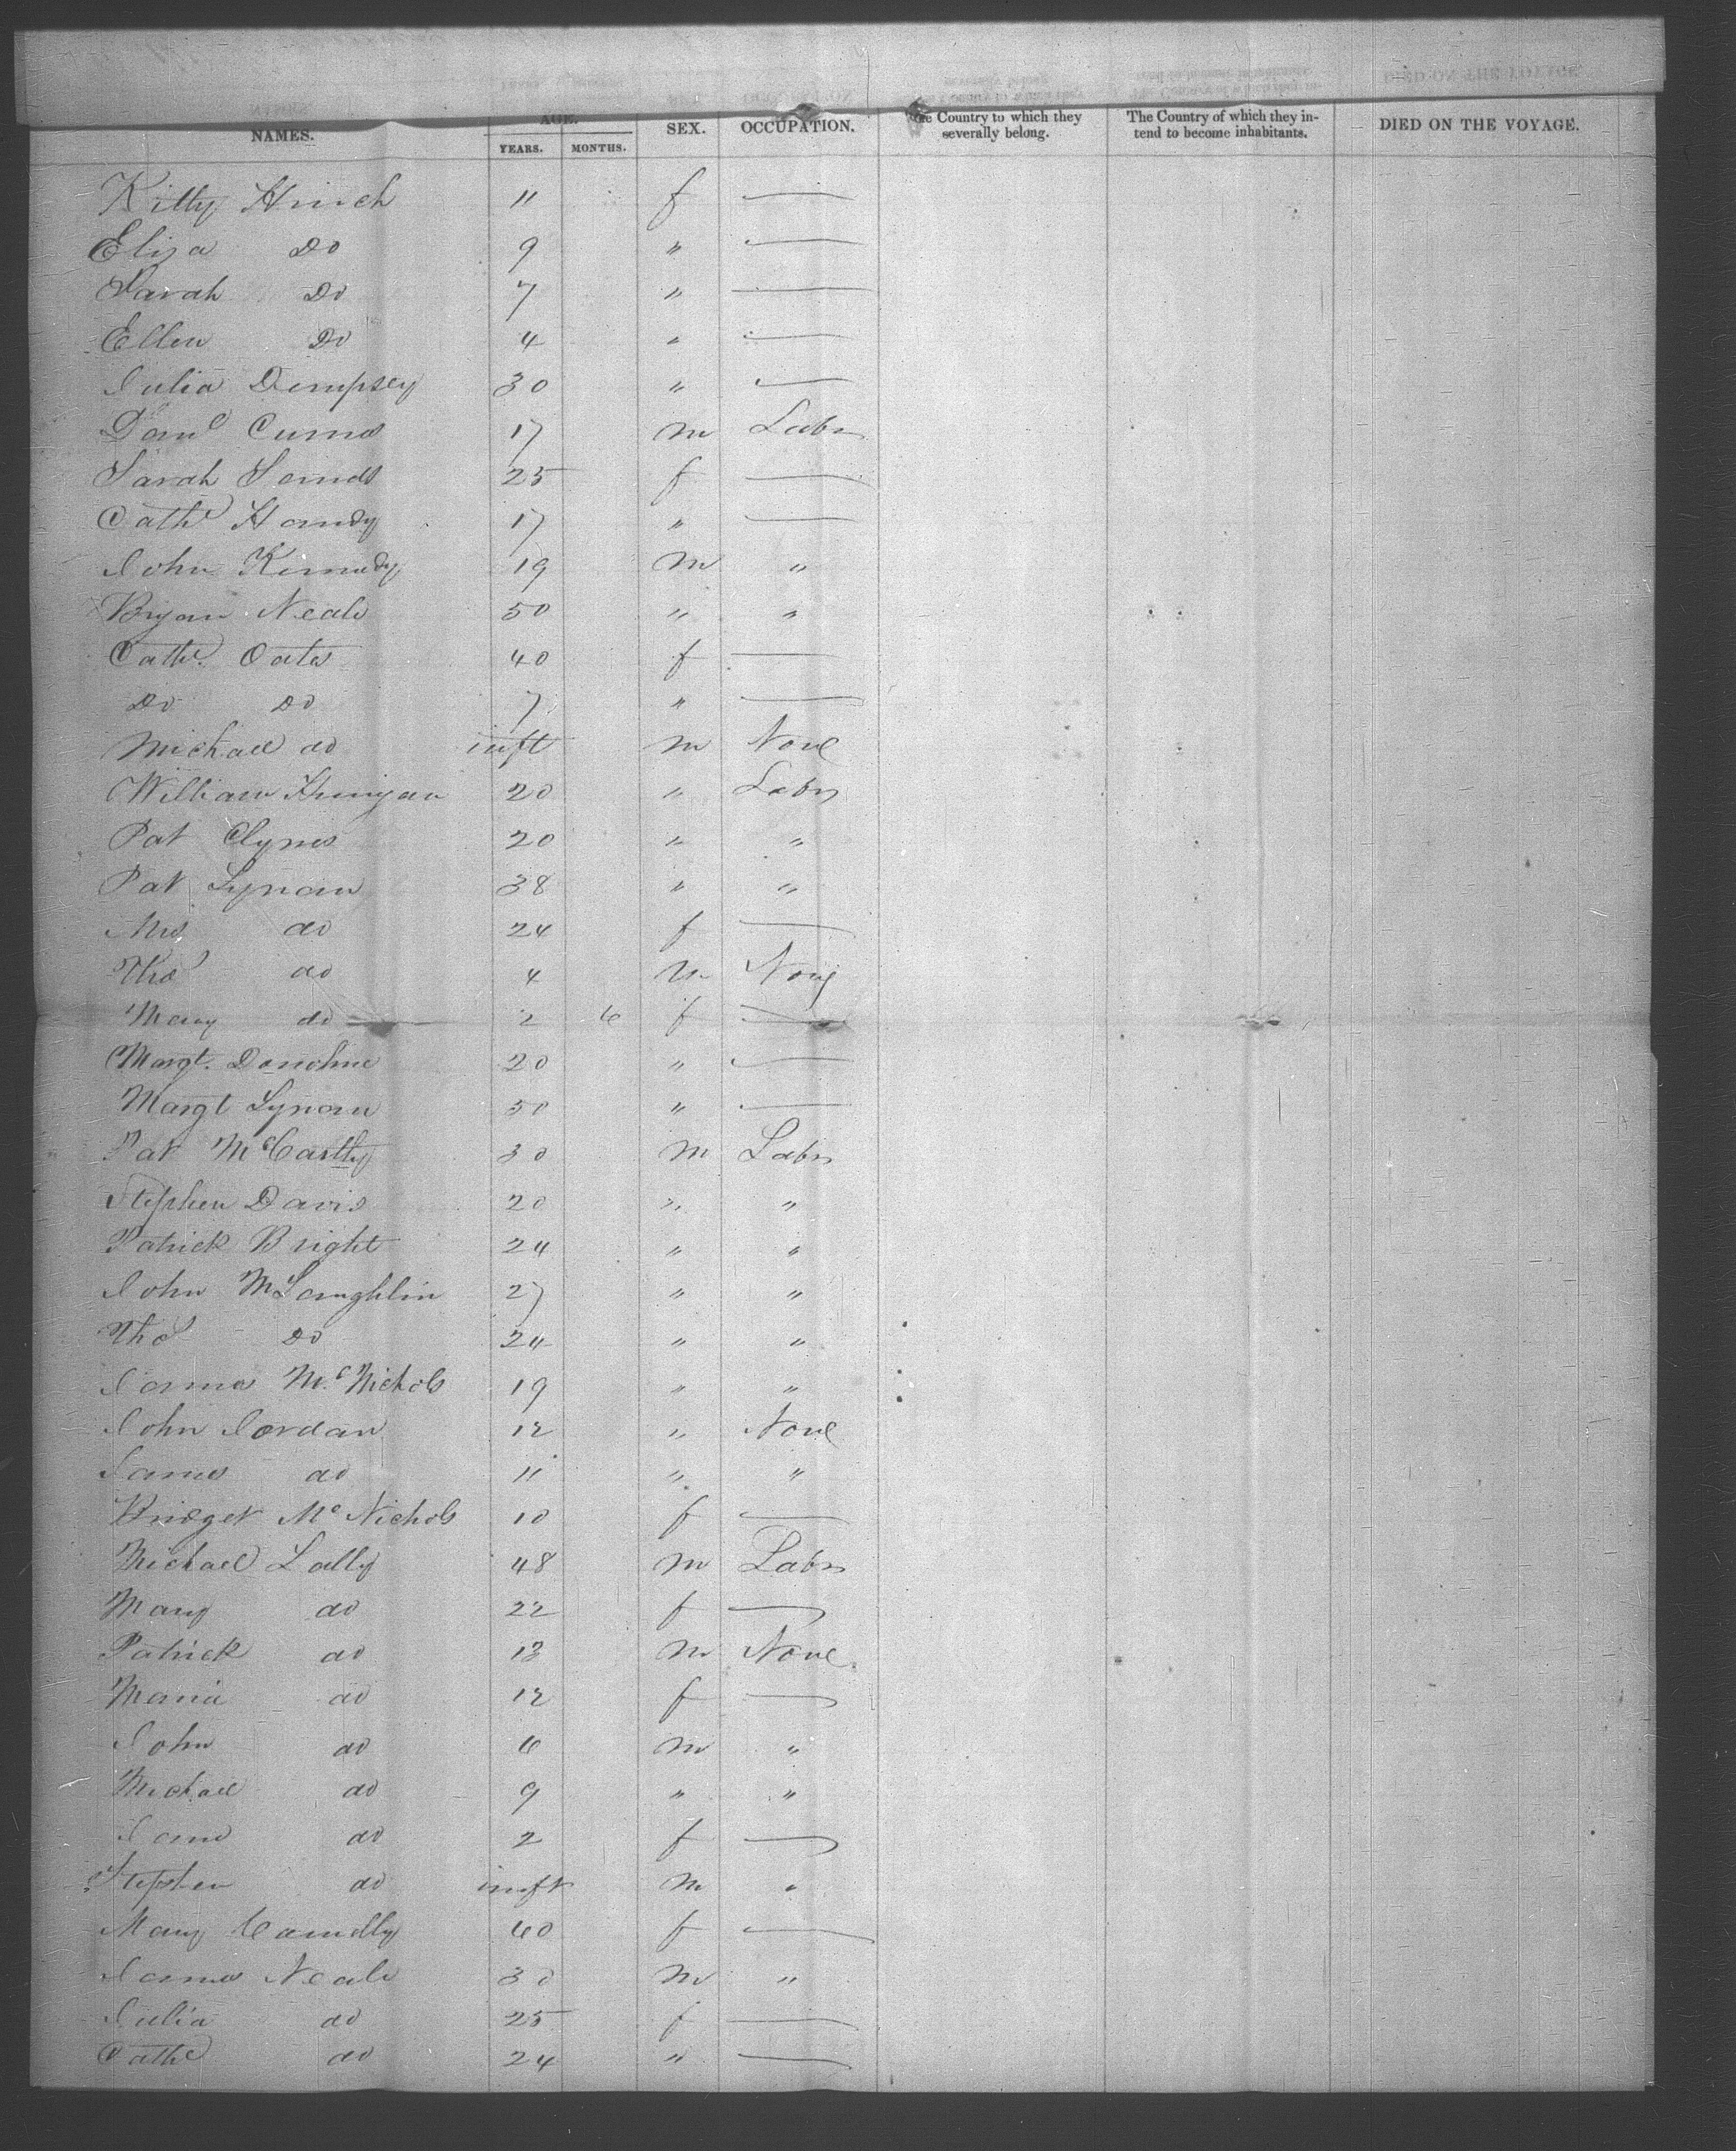 NAMES. AGE. YEARS. MONTHS. SEX. OCCUPATION. The Country to which they severally belong. The Country of which they intend to become inhabitants. DIED ON THE VOYAGE.
Kitty Hinch 11 f —
Eliza Do 9 " —
Sarah Do 7 " —
Ellen Do 4 " —
Julia Dempsey 30 " —
Danl 17 m Labr
Sarah 25 f —
Cathe Handy 17 " —
John Kennedy 19 m "
Bryan Neale 50 " "
Cathe. Oates 40 f —
Do Do 7 " —
Michael do inft m None
William 20 " Labr
Pat Clynes 20 " "
Pat Lynam 38 " "
Mrs do 24 f —
Thos do 4 m None
Mary do 2 6 f —
Margt. Donohue 20 " —
Margt Lynam 50 " —
Pat McCarthy 30 m Labr
Stephen Davis 20 " "
Patrick Bright 24 " "
John McLaughlin 27 " "
Thos Do 24 " "
James McNichols 19 " "
John Jordan 12 " None
James do 11 " "
Bridget McNichols 10 f —
Michael Lally 48 m Labr
Mary do 22 f —
Patrick do 13 m None
Maria do 12 f —
John do 6 m "
Michael do 9 " "
Jane do 2 f —
Stephen do inft m "
Mary 60 f —
James Neale 30 m "
Julia do 25 f —
Cathe do 24 " —